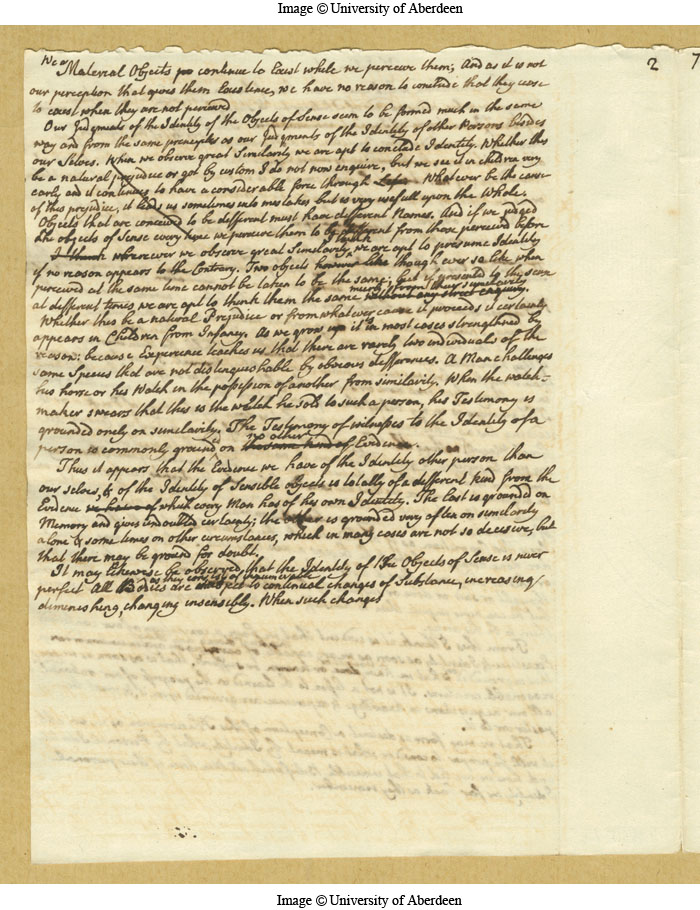 Image © University of Aberdeen
2 7
We a
Material Objects continue to Exist while we perceive them; And as it is not
our perception that gives them Existence, we have no reason to conclude that they cease
to exist when they are not perceived
Our Judgments of the Identity of the Objects of Sense seem to be formed much in the same
way and from the same principles as our Judgments of the Identity of other Persons besides
our Selves. When we observe great Similarity we are apt to conclude Identity. Whether this
be a natural prejudice or got by custom I do not now enquire, but we see it in children very
early and it continues to have a considerable force through Life. Whatever be the cause
of this prejudice, it leads us sometimes into mistakes but is very usefull upon the Whole.
Objects that are conceived to be different must have different Names. And if we judged
the objects of Sense every time we perceived them to be different from those perceived before
I think
I think wherever we observe great Similarity we are apt to presume Identity
if no reason appears to the Contrary. Two objects however like though ever so like when
perceived at the same time cannot be taken to be the same; but if presented to the sense
merely from their similarity
at different times we are apt to think them the same without any strict enquiry.
Whether this be a natural Prejudice or from whatever cause it proceeds it certainly
appears in Children from Infancy. As we grow up it is in most cases strengthened by
reason: because Experience teaches us that there are rarely two individuals of the
same Species that are not distinguishable by obvious differences. A Man challenges
his horse or his Watch in the possession of another from similarity. When the watch-
maker swears that this is the watch he sold to such a person, his Testimony is
grounded onely on similarity. The Testimony of witnesses to the Identity of a
no other
person is commonly grounded on the same kind of Evidence.
Thus it appears that the Evidence we have of the Identity other person than
our selves, & of the Identity of Sensible objects is totally of a different kind from the
Evidence we have of which every Man has of his own Identity. The last is grounded on
Memory and gives undoubted certainty; the other is grounded very often on similarity
alone & some times on other circumstances, which in many cases are not so decisive, but
that there may be ground for doubt.
It may likewise be observed that the Identity of the Objects of Sense is never
as they consist of innumerable
perfect All Bodies are subject to continual changes of Substance, increasing
diminishing, changing insensibly. When such changes
Image © University of Aberdeen